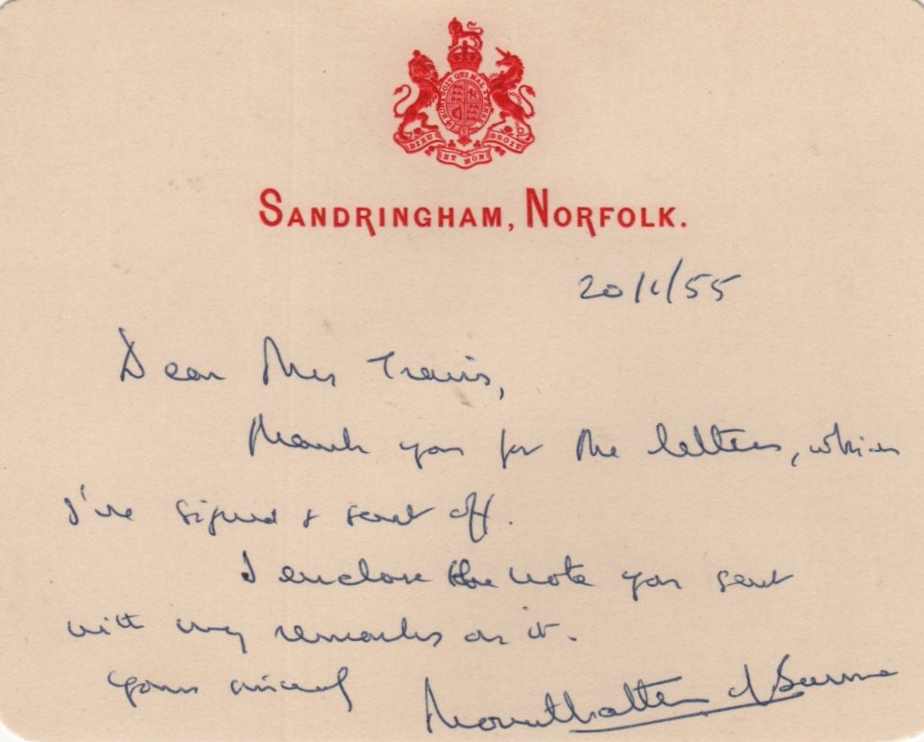 HONI SOIT QUI MAL Y PENSE
DIEU ET MON DROIT
SANDRINGHAM, NORFOLK.
20/1/55
Dear Mrs Travis,
Thank you for the letters, which
I've signed & sent off.
I enclose the note you sent
with my remarks on it.
Yours sincerely
Mountbatten of Burma